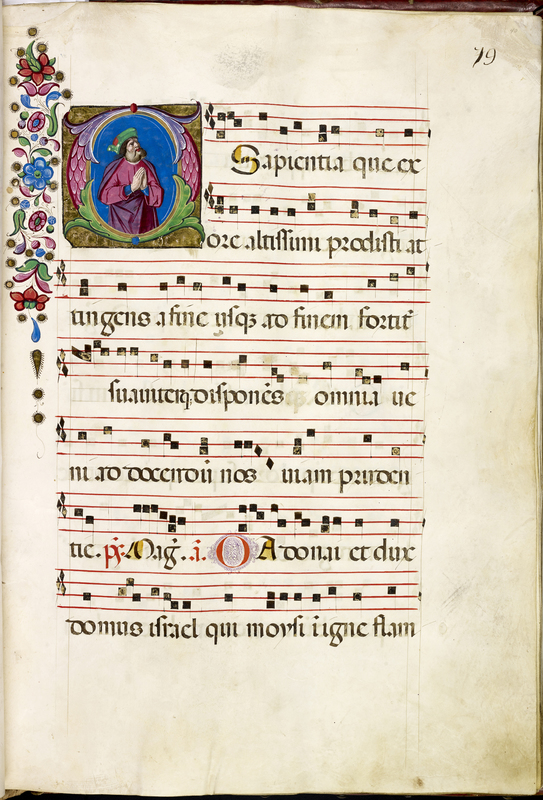 79
O Sapientia que ex
ore altissimi prodisti at
tingens a fine usq ad finem fortit̄
suauiterq disponēs omnia ue
ni ad docendū nos uiam pruden
tie. p̄s. Maḡ. a̅. O Adonai et dux
domus israel qui moysi ī igne flam